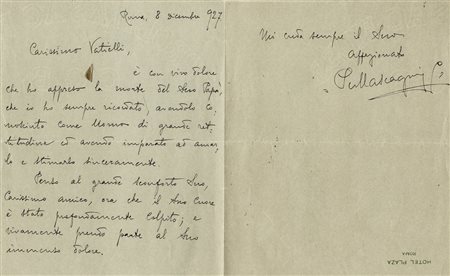 Roma, 8 dicembre 927
Carissimo Vatielli,
è con vivo dolore
che ho appreso la morte del Suo Papà,
che io ho sempre ricordato, avendolo co=
nosciuto come Uomo di grande ret=
titudine ed avendo imparato ad amar=
lo e stimarlo sinceramente.
Penso al grande sconforto Suo,
Carissimo amico, ora che il Suo Cuore
è stato profondamente colpito; e
vivamente prendo parte al Suo
immenso dolore.
Mi creda sempre il Suo
affezionato
P. Mascagni
HOTEL PLAZA
ROMA